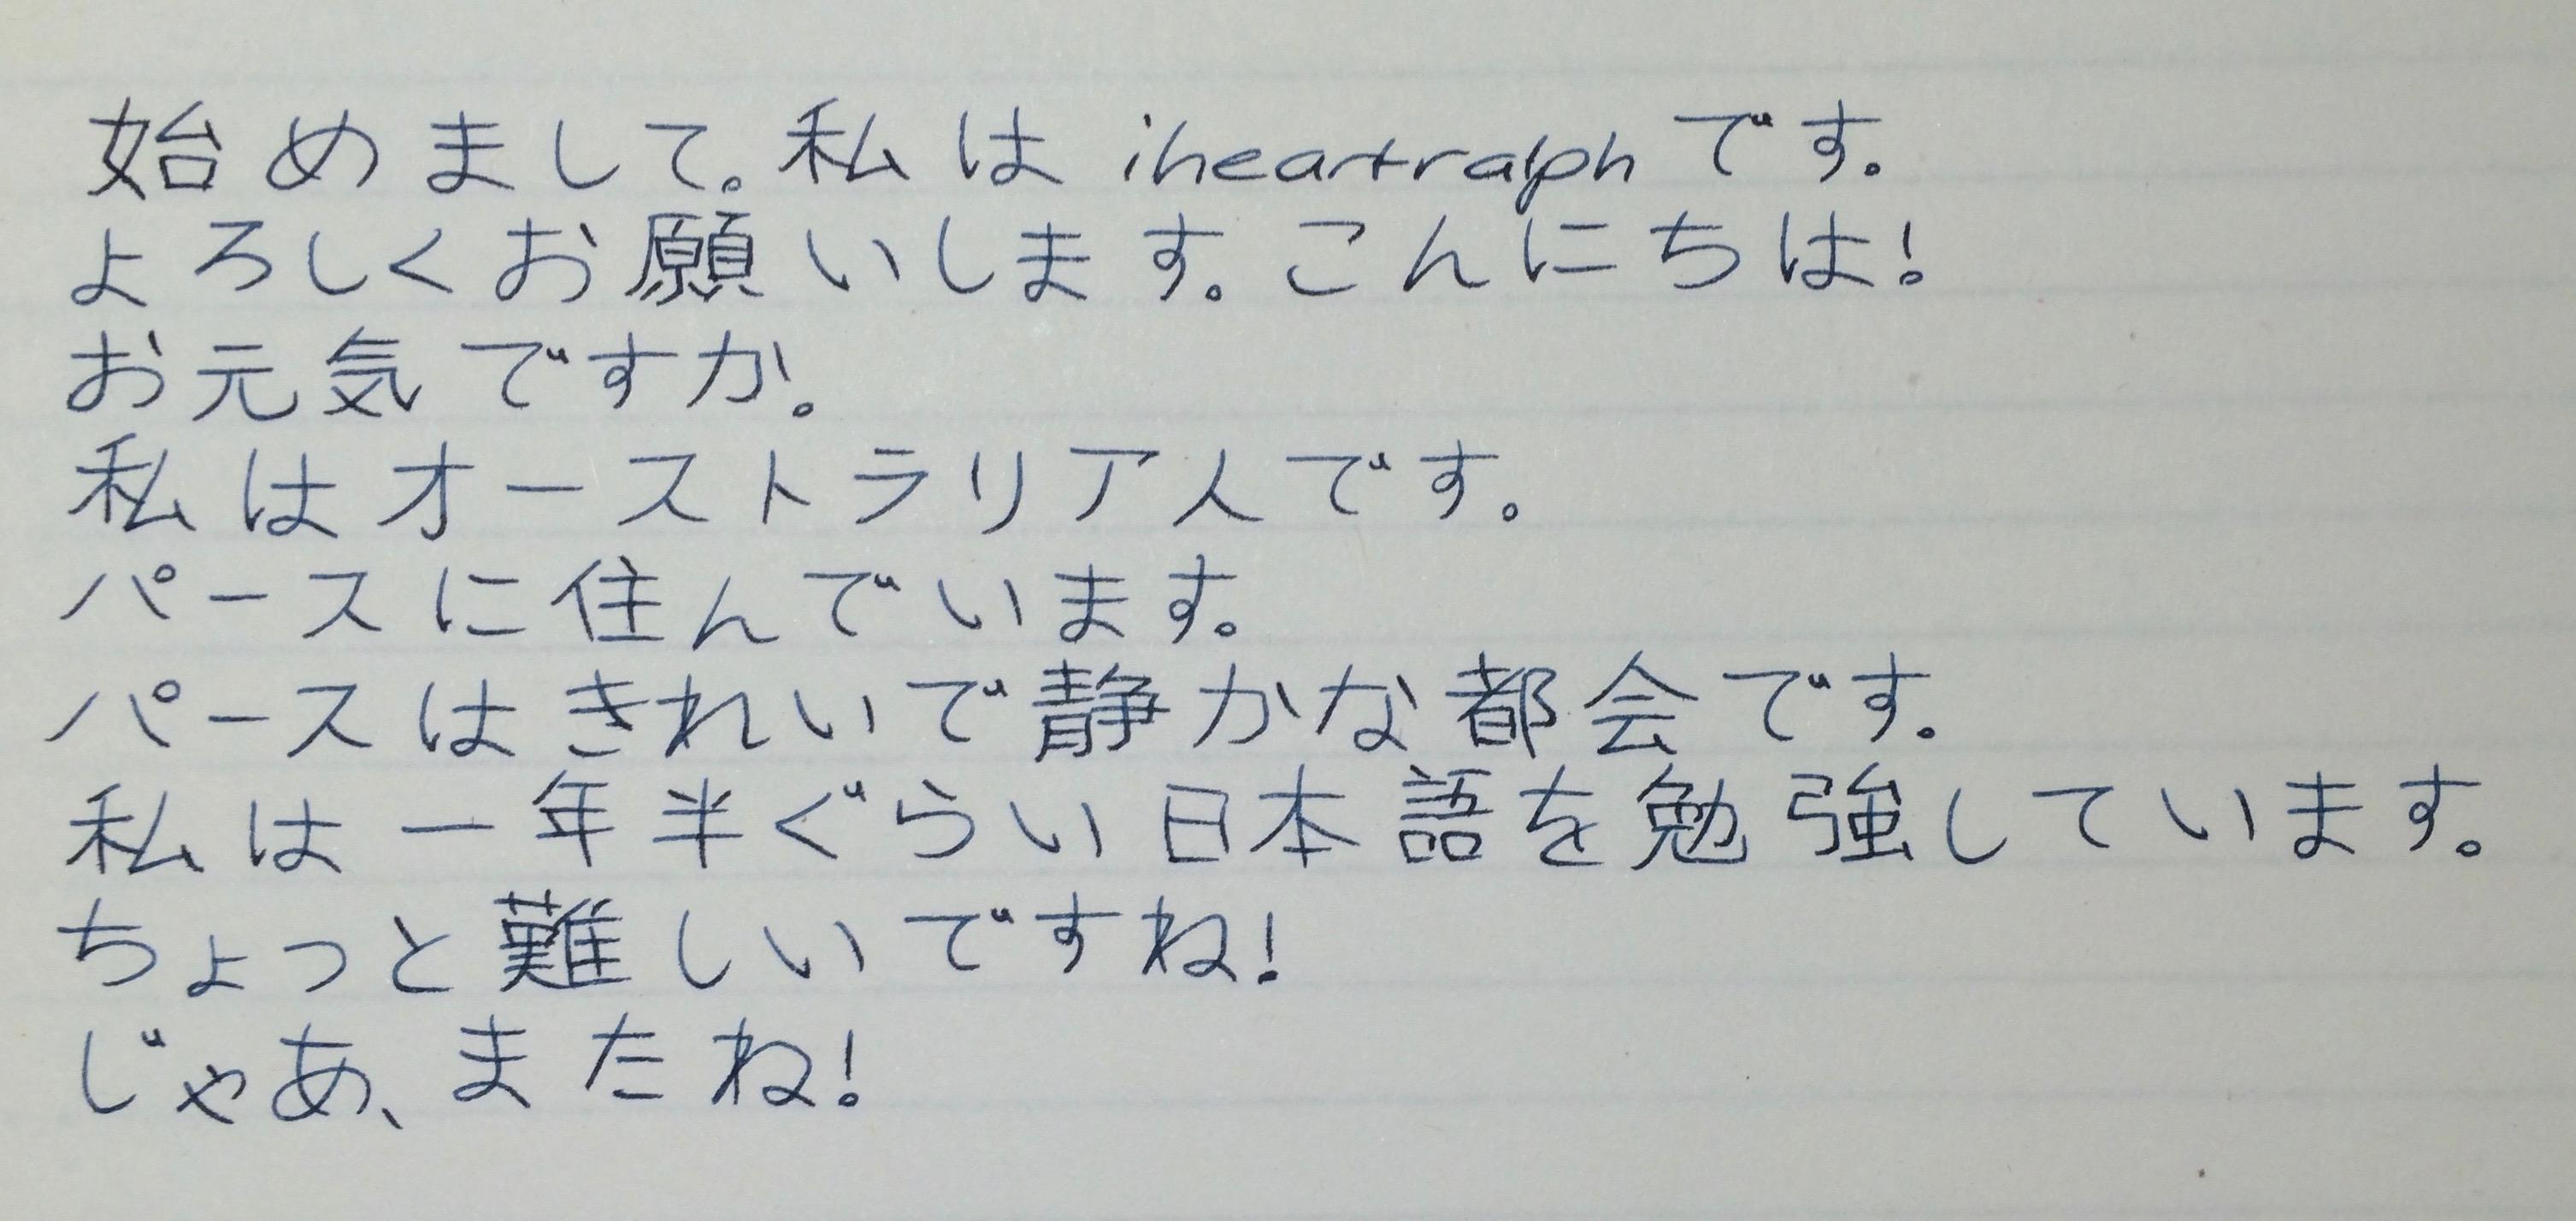 始めまして。私は iheartralph です。
よろしくお願いします。こんにちは!
お元気ですか。
私はオーストラリア人です。
パースに住んでいます。
パースはきれいで静かな都会です。
私は一年半ぐらい日本語を勉強しています。
ちょっと難しいですね!
じゃあ、またね!